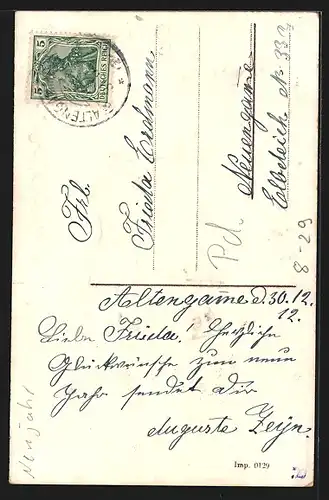 5 5
DEUTSCHES REICH
ALTENG
Frl.
Frieda Erdmann
Neuengamme
Elbdeich N. 33a
Pd.
8-29
Altengamme d. 30.12.
12.
Liebe Frieda! Herzliche
Glückwünsche zum neuen
Jahr sendet Dir
Auguste Zeyn.
Neujahr
Imp. 0129